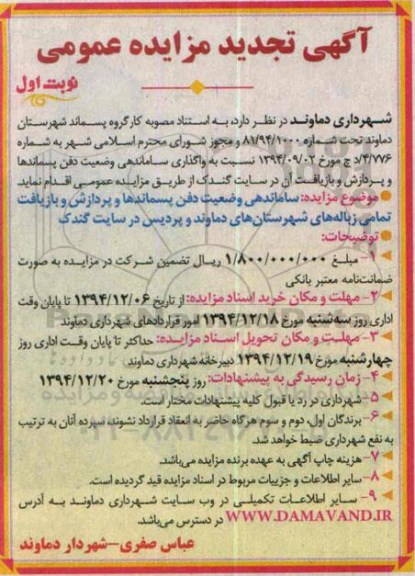 آگهی تجدید مزایده عمومی
نوبت اول
شهرداری دماوند در نظر دارد، به استناد مصوبه کارگروه پسماند شهرستان
دماوند تحت شماره ۸۱/۹۴/۱۰۰۰ و مجوز شورای محترم اسلامی شهر به شماره
۴/۷۷۶/د ج مورخ ۱۳۹۴/۰۹/۰۲ نسبت به واگذاری ساماندهی وضعیت دفن پسماندها
و پردازش و بازیافت آن در سایت گندک از طریق مزایده عمومی اقدام نماید.
موضوع مزایده: ساماندهی وضعیت دفن پسماندها و پردازش و بازیافت
تمامی زباله‌های شهرستان‌های دماوند و پردیس در سایت گندک
توضیحات:
۱- مبلغ ۱/۸۰۰/۰۰۰/۰۰۰ ریال تضمین شرکت در مزایده به صورت
ضمانت‌نامه معتبر بانکی
۲- مهلت و مکان خرید اسناد مزایده: از تاریخ ۱۳۹۴/۱۲/۰۶ تا پایان وقت
اداری روز سه‌شنبه مورخ ۱۳۹۴/۱۲/۱۸ امور قراردادهای شهرداری دماوند
۳- مهلت و مکان تحویل اسناد مزایده: حداکثر تا پایان وقت اداری روز
چهارشنبه مورخ ۱۳۹۴/۱۲/۱۹ دبیرخانه شهرداری دماوند
۴- زمان رسیدگی به پیشنهادات: روز پنجشنبه مورخ ۱۳۹۴/۱۲/۲۰
۵- شهرداری در رد یا قبول کلیه پیشنهادات مختار است.
۶- برندگان اول، دوم و سوم هرگاه حاضر به انعقاد قرارداد نشوند، سپرده آنان به ترتیب
به نفع شهرداری ضبط خواهد شد.
۷- هزینه چاپ آگهی به عهده برنده مزایده می‌باشد.
۸- سایر اطلاعات و جزییات مربوط در اسناد مزایده قید گردیده است.
۹- سایر اطلاعات تکمیلی در وب سایت شهرداری دماوند به آدرس
WWW.DAMAVAND.IR در دسترس می‌باشد.
عباس صفری–شهردار دماوند